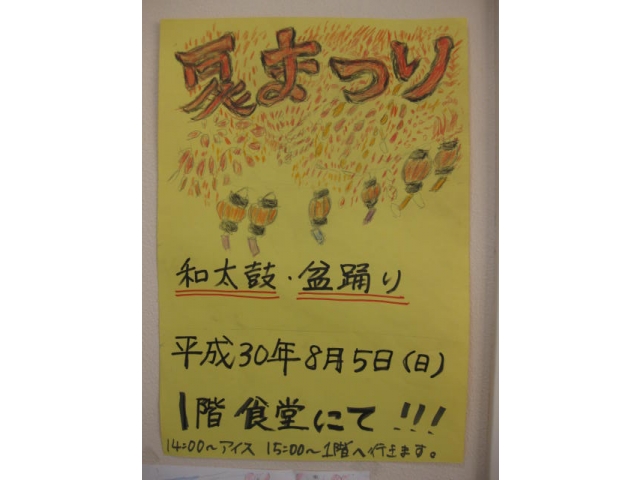 夏まつり
和太鼓・盆踊り
平成30年8月5日(日)
1階 食堂にて!!!
14:00~アイス 15:00~1階へ行きます。